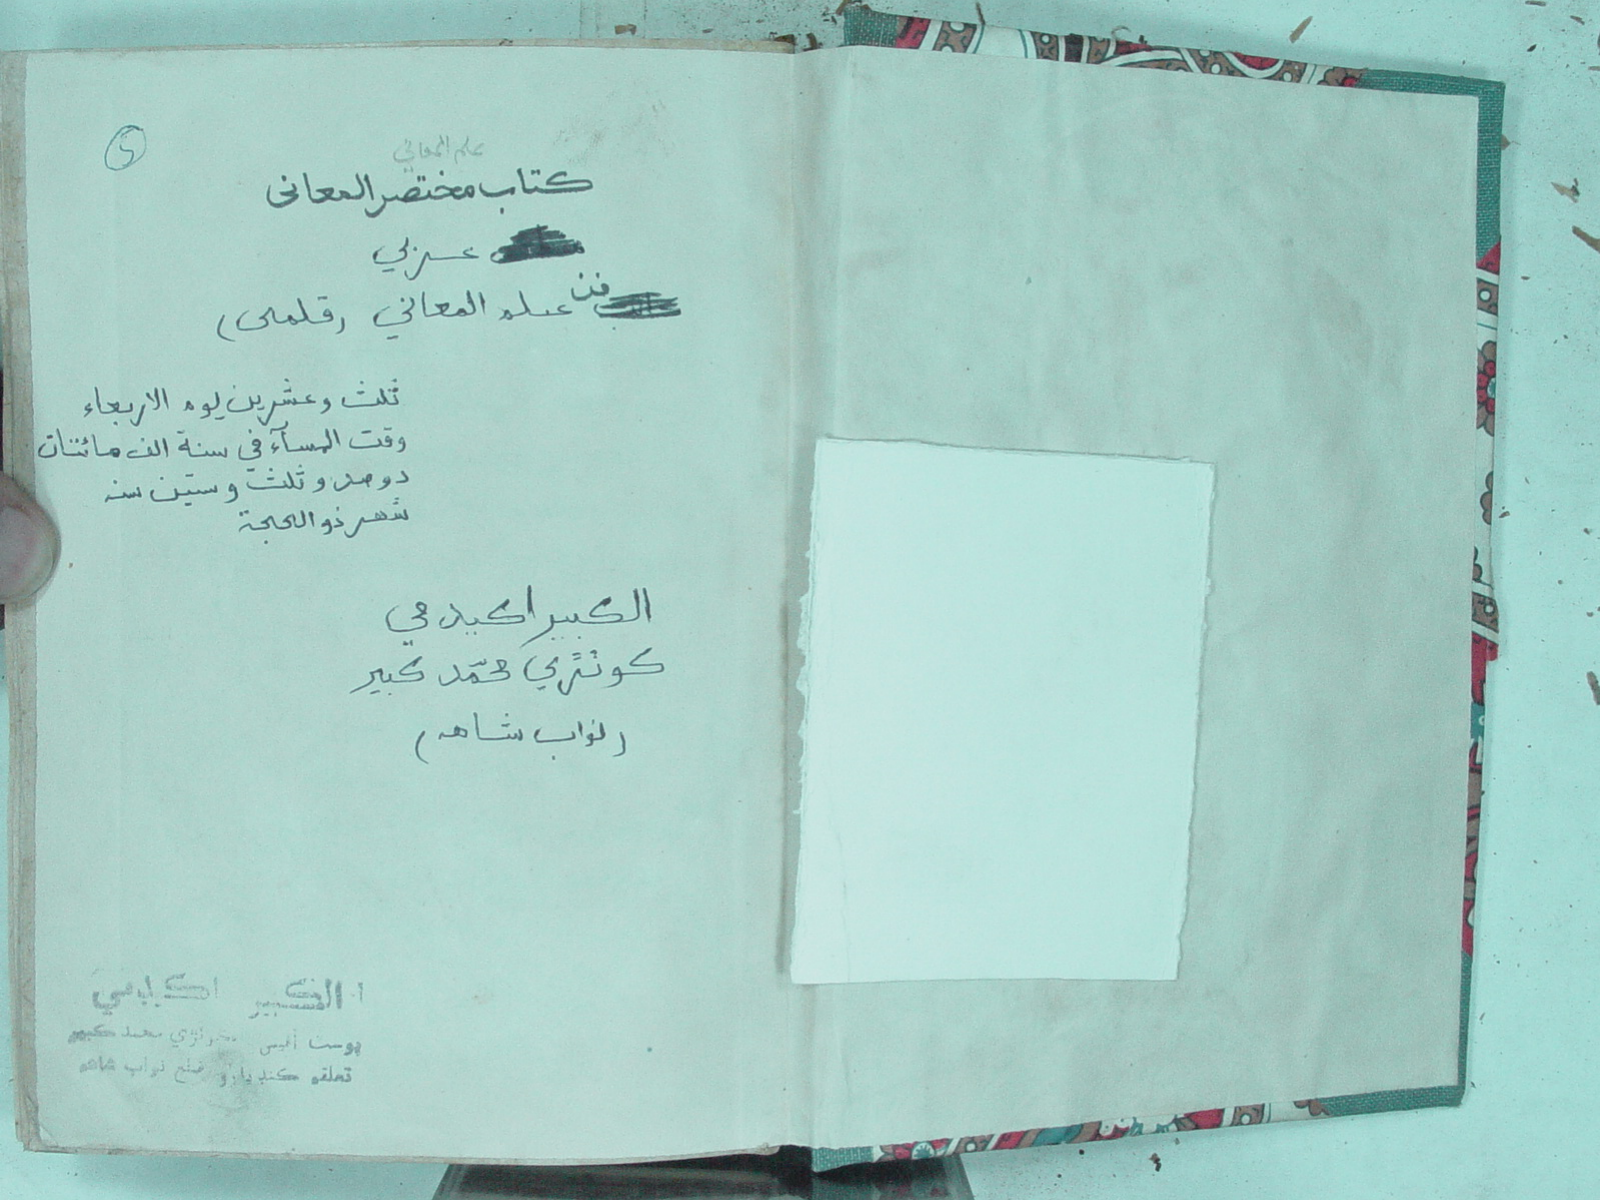 5
علم المعاني
كتاب مختصر المعانى
عربي
فن علم المعاني (قلمى)
ثلث وعشرين يوم الاربعاء
وقت المسآء فى سنة الف مائتان
دو صد و ثلث و ستين سنه
شهر ذو الحجة
الكبير اكيڊمي
گوٺ ٺري محمّد كبير
(نواب شاهه)
الكبير اكيڊمي
پوسٽ آفيس محمد كبير
تعلقه كنڊيارو ضلع نواب شاهه